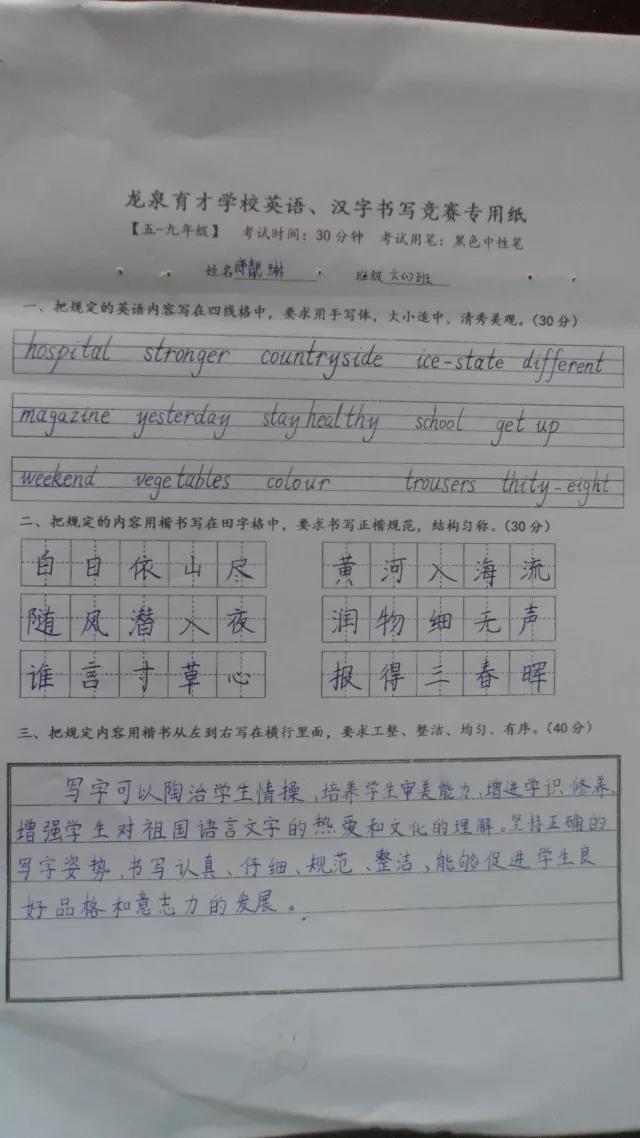 龙泉育才学校英语、汉字书写竞赛专用纸
【五-九年级】 考试时间：30分钟 考试用笔：黑色中性笔
姓名 靓琳 班级 六(4)班
一、把规定的英语内容写在四线格中，要求用手写体，大小适中，清秀美观。（30分）
hospital stronger countryside ice-state different
magazine yesterday stay healthy school get up
weekend vegetables colour trousers thity-eight
二、把规定的内容用楷书写在田字格中，要求书写正楷规范，结构匀称。（30分）
白日依山尽 黄河入海流
随风潜入夜 润物细无声
谁言寸草心 报得三春晖
三、把规定内容用楷书从左到右写在横行里面，要求工整、整洁、均匀、有序。（40分）
写字可以陶冶学生情操，培养学生审美能力，增进学识修养、
增强学生对祖国语言文字的热爱和文化的理解。坚持正确的
写字姿势，书写认真、仔细、规范、整洁，能够促进学生良
好品格和意志力的发展。